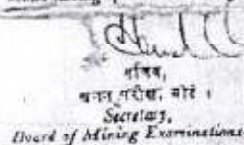 सचिव,
खनन परीक्षा, बोर्ड ।
Secretary,
Board of Mining Examinations